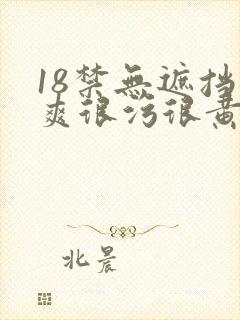 18禁無遮挡
爽很污很黄
北晨